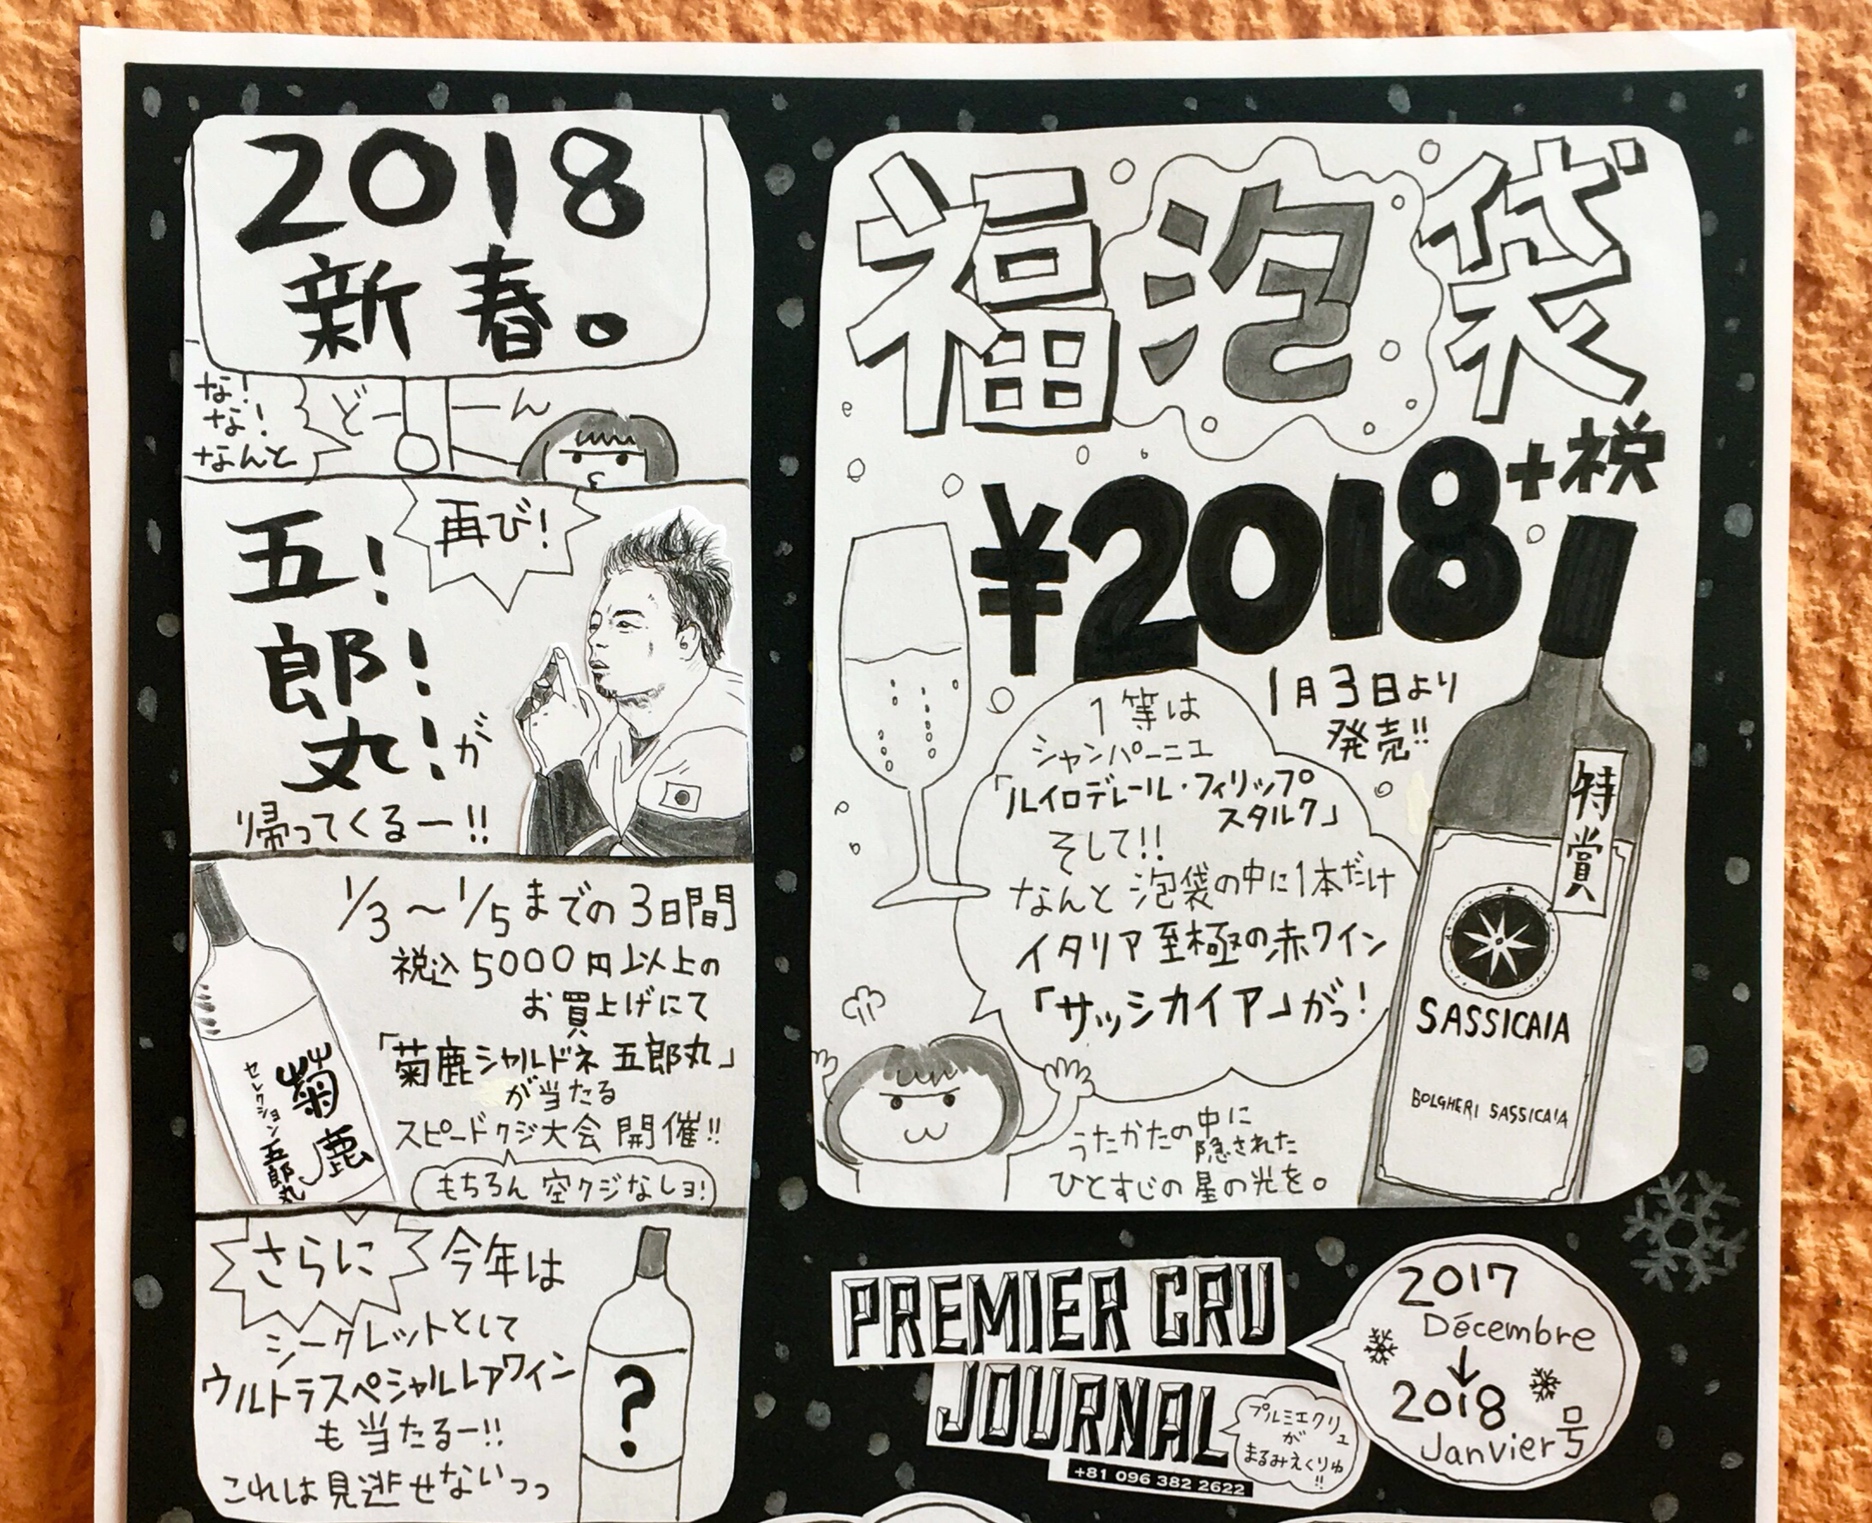 2018
新春。
な!
な!
なんと
どーーん
再び!
五!
郎!
丸!が
帰ってくるー!!
1/3〜1/5までの3日間
税込5000円以上の
お買上げにて
「菊鹿シャルドネ 五郎丸」
が当たる
スピードクジ大会 開催!!
もちろん 空クジなしョ!
菊鹿
セレクション 五郎丸
さらに 今年は
シークレットとして
ウルトラスペシャルレアワイン
も当たるー!!
これは見逃せないっっ
?
福泡袋
¥2018+税
1月3日より
発売!!
1等は
シャンパーニュ
「ルイロデレール・フィリップ
スタルク」
そして!!
なんと 泡袋の中に1本だけ
イタリア至極の赤ワイン
「サッシカイア」がっ!
特賞
SASSICAIA
BOLGHERI SASSICAIA
うたかたの中に
隠された
ひとすじの星の光を。
PREMIER CRU
JOURNAL
+81 096 382 2622
プルミエクリュ
が
まるみえくりゅ
!!
2017
Décembre
↓
2018
Janvier号